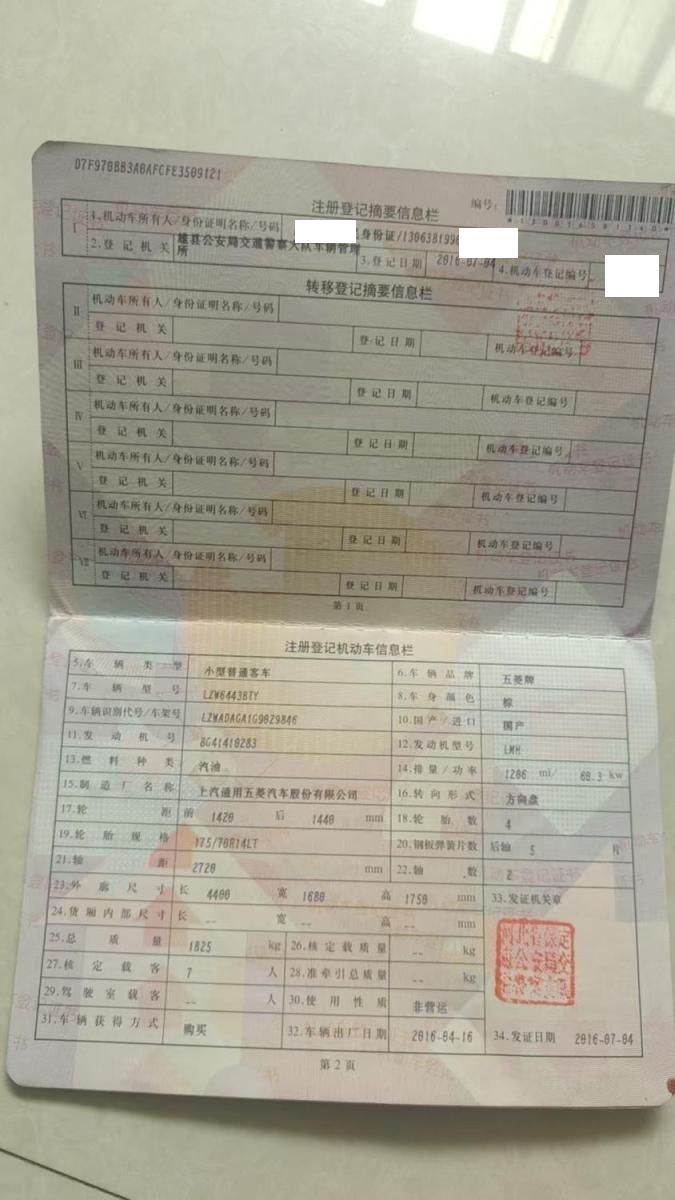 D7F970BB3A0AFCFE3509121
编号:
注册登记摘要信息栏
I 1.机动车所有人/身份证明名称/号码 身份证/1306381990
2.登记机关 雄县公安局交通警察大队车辆管理所 3.登记日期 2016-07-04 4.机动车登记编号
转移登记摘要信息栏
II 机动车所有人/身份证明名称/号码
登记机关 登记日期 机动车登记编号
III 机动车所有人/身份证明名称/号码
登记机关 登记日期 机动车登记编号
IV 机动车所有人/身份证明名称/号码
登记机关 登记日期 机动车登记编号
V 机动车所有人/身份证明名称/号码
登记机关 登记日期 机动车登记编号
VI 机动车所有人/身份证明名称/号码
登记机关 登记日期 机动车登记编号
VII 机动车所有人/身份证明名称/号码
登记机关 登记日期 机动车登记编号
第1页
注册登记机动车信息栏
5.车辆类型 小型普通客车 6.车辆品牌 五菱牌
7.车辆型号 LZW6443BTY 8.车身颜色 棕
9.车辆识别代号/车架号 LZWADAGA1G9029846 10.国产/进口 国产
11.发动机号 8G41410283 12.发动机型号 LMH
13.燃料种类 汽油 14.排量/功率 1206 ml/ 60.3 kw
15.制造厂名称 上汽通用五菱汽车股份有限公司 16.转向形式 方向盘
17.轮距 前 1420 后 1440 mm 18.轮胎数 4
19.轮胎规格 175/70R14LT 20.钢板弹簧片数 后轴 5 片
21.轴距 2720 mm 22.轴数 2
23.外廓尺寸 长 4400 宽 1680 高 1750 mm 33.发证机关章
24.货厢内部尺寸 长 -- 宽 -- 高 -- mm
25.总质量 1825 kg 26.核定载质量 -- kg
27.核定载客 7 人 28.准牵引总质量 -- kg
29.驾驶室载客 -- 人 30.使用性质 非营运
31.车辆获得方式 购买 32.车辆出厂日期 2016-04-16 34.发证日期 2016-07-04
第2页